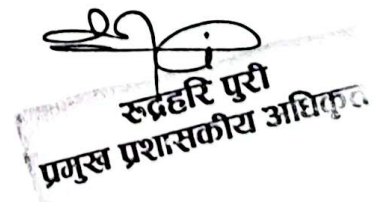 रुद्रहरि पुरी
प्रमुख प्रशासकीय अधिकृत